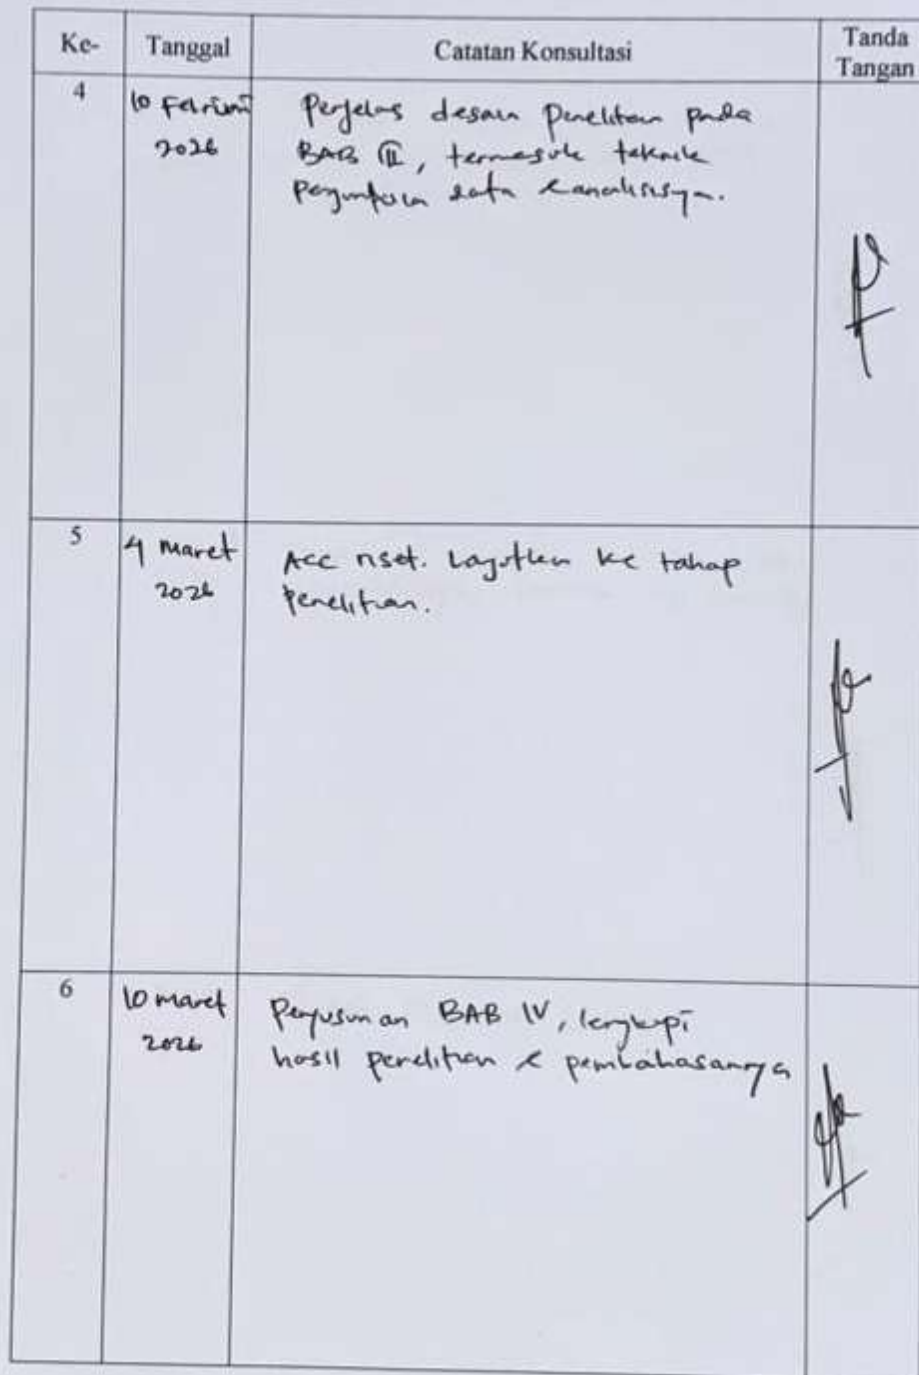 Ke-
Tanggal
Catatan Konsultasi
Tanda
Tangan
4
10 Februari
2026
Perjelas desain penelitian pada
BAB III, termasuk teknik
pengumpulan data & analisisnya.
5
4 maret
2026
Acc riset. Lanjutkan ke tahap
penelitian.
6
10 maret
2026
Penyusunan BAB IV, lengkapi
hasil penelitian & pembahasannya